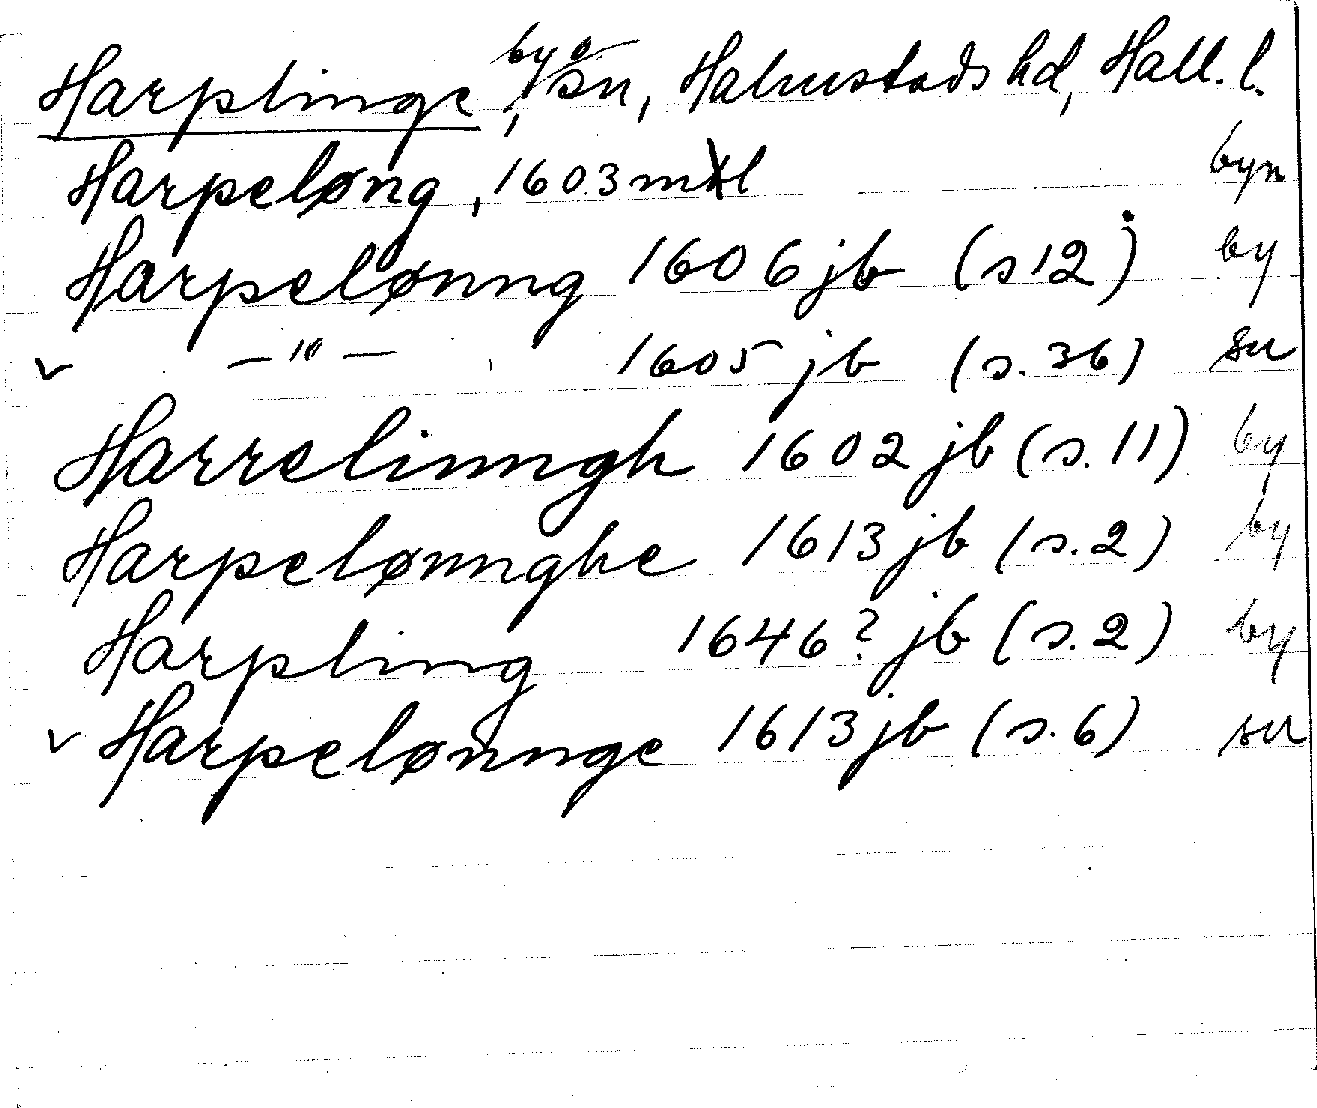 Harplinge, by o sn, Halmstads hd, Hall. l.
Harpeløng, 1603 mtl byn
Harpelønng 1606 jb (s 12) by
v —"— 1605 jb (s. 36) sn
Harrelinngh 1602 jb (s. 11) by
Harpelønnghe 1613 jb (s. 2) by
Harpling 1646? jb (s. 2) by
v Harpelønnge 1613 jb (s. 6) sn